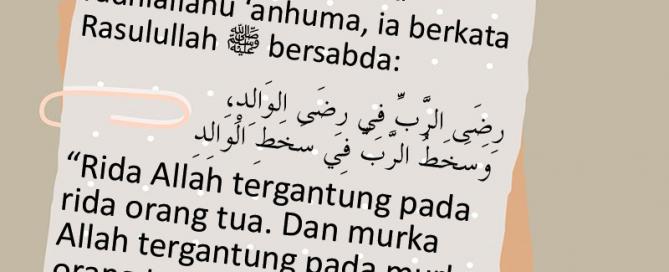 'anhuma, ia berkata
Rasulullah ﷺ bersabda:
رِضَى الرَّبِّ فِي رِضَى الوَالِدِ،
وَسَخَطُ الرَّبِّ فِي سَخَطِ الْوَالِدِ
“Rida Allah tergantung pada
rida orang tua. Dan murka
Allah tergantung pada
orang